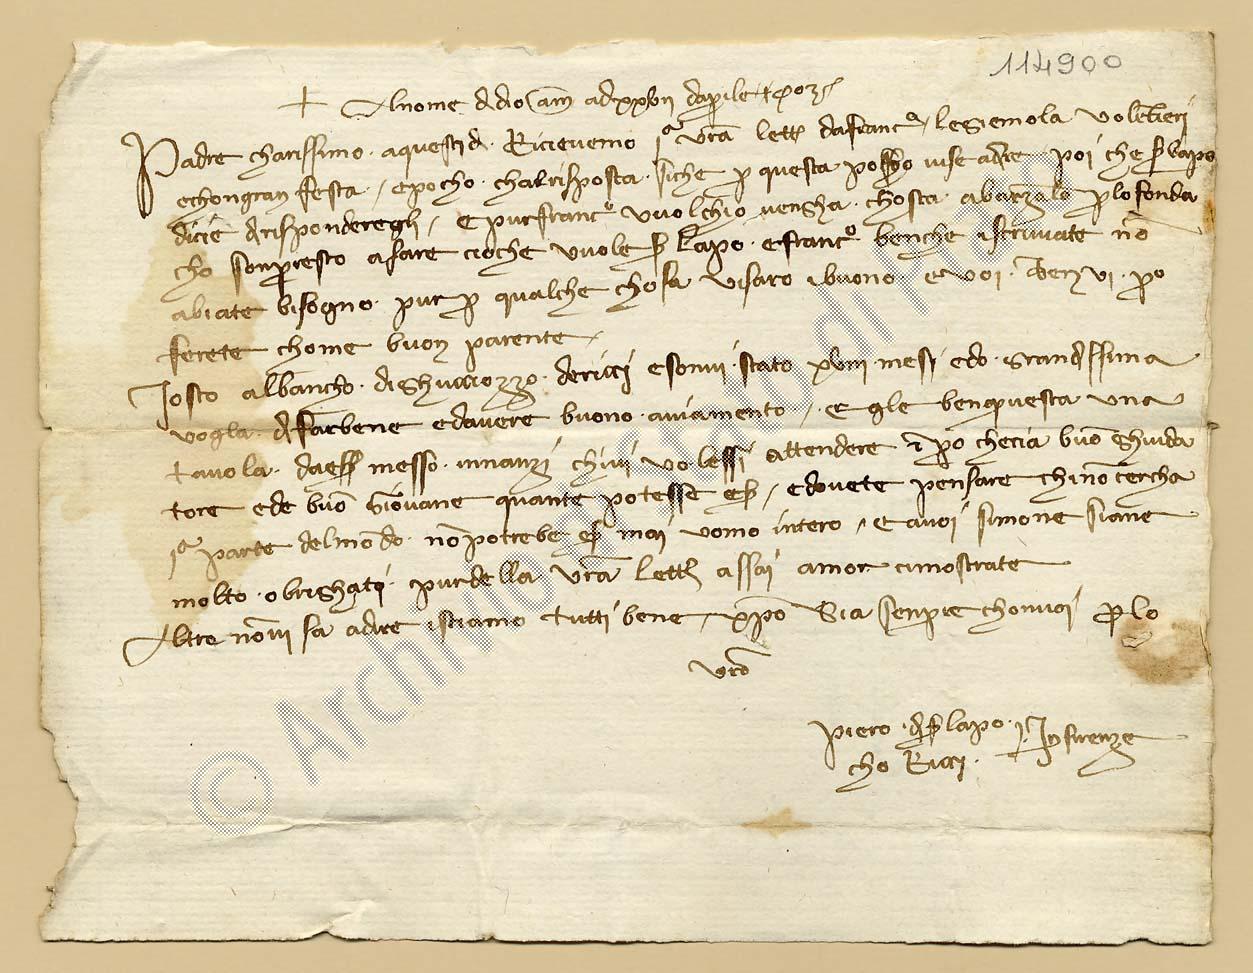 114900
+ Al nome di dio am adi xxvii daprile
Padre charissimo aquesti di Ricievemo jª vrã lettª da francº / legiemola volẽtieri
e chon gran festa / e pocho chal risposta siche p questa posso dire poi che s lapo
dicie di risponderegli / e pur francº vuol chio vengha chosta
cho son presto a fare cioche vuole s lapo e francº benche iscriviate nõ
abiate bisogno pur p qualche chosa visaro i buono e voi pro
ferete chome buon parente
Io sto al bancho di ghucciozzo de ricci e sonvi stato xviii mesi e do grandissima
voglia di far bene e davere buono aviamento / e gle ben questa una
tavola da es messo innanzi chivi volessi attendere checia buõ ghuida
tore e de buõ giovane quante potesse es / e dovete pensare chi nõ cercha
jª parte del mõdo nõ potrebe es mai uomo intero / e a voi simone siamo
molto obrighati pur della vrã lettª assai amor ci mostrate
Altro nõ vi fa a dire istiamo tutti bene / xp̃o sia senpre chon voi p lo
vrõ
Piero di s lapo in firenze
cho Ricci
© Archivio di Stato di Prato